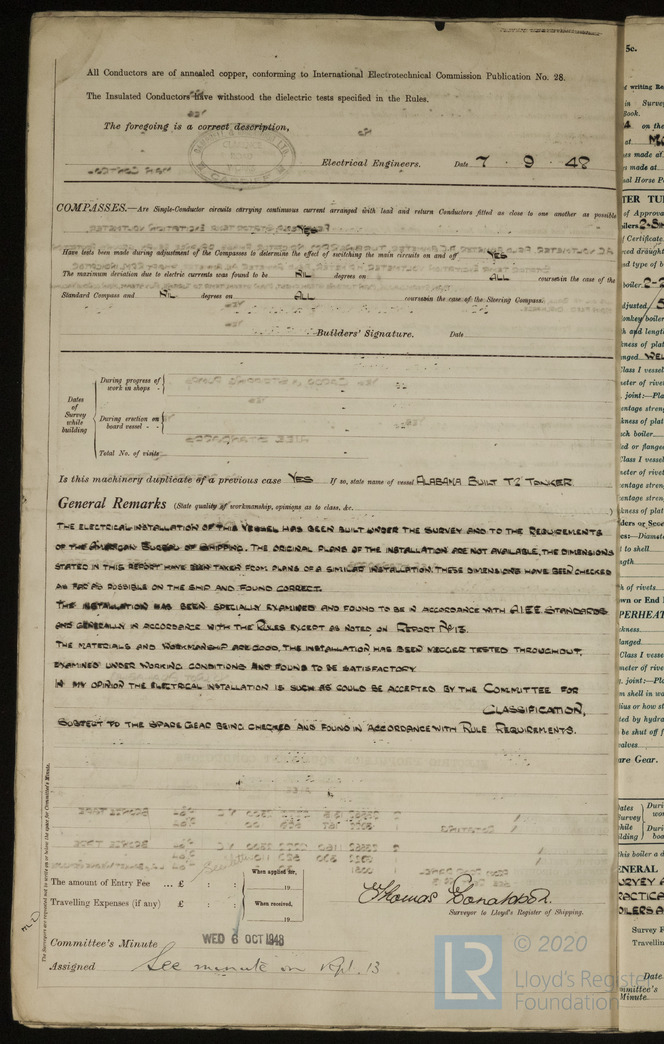 All Conductors are of annealed copper, conforming to International Electrotechnical Commission Publication No. 28.
The Insulated Conductors have withstood the dielectric tests specified in the Rules.
The foregoing is a correct description,
Electrical Engineers. Date 7 . 9 . 48
COMPASSES.—Are Single-Conductor circuits carrying continuous current arranged with lead and return Conductors fitted as close to one another as possible
YES
Have tests been made during adjustment of the Compasses to determine the effect of switching the main circuits on and off YES
The maximum deviation due to electric currents was found to be NIL degrees on ALL courses in the case of the
Standard Compass and NIL degrees on ALL courses in the case of the Steering Compass.
Builders' Signature. Date
Dates of Survey while building
During progress of work in shops - -
During erection on board vessel - -
Total No. of visits
Is this machinery duplicate of a previous case YES If so, state name of vessel ALABAMA BUILT T2 TANKER
General Remarks (State quality of workmanship, opinions as to class, &c. )
THE ELECTRICAL INSTALLATION OF THIS VESSEL HAS BEEN BUILT UNDER THE SURVEY AND TO THE REQUIREMENTS
OF THE AMERICAN BUREAU OF SHIPPING. THE ORIGINAL PLANS OF THE INSTALLATION ARE NOT AVAILABLE, THE DIMENSIONS
STATED IN THIS REPORT HAVE BEEN TAKEN FROM PLANS OF A SIMILAR INSTALLATION. THESE DIMENSIONS HAVE BEEN CHECKED
AS FAR AS POSSIBLE ON THE SHIP AND FOUND CORRECT.
THE INSTALLATION HAS BEEN SPECIALLY EXAMINED AND FOUND TO BE IN ACCORDANCE WITH A.I.E.E. STANDARDS
AND GENERALLY IN ACCORDANCE WITH THE RULES EXCEPT AS NOTED ON REPORT Nº 13.
THE MATERIALS AND WORKMANSHIP ARE GOOD, THE INSTALLATION HAS BEEN MEGGER TESTED THROUGHOUT,
EXAMINED UNDER WORKING CONDITIONS AND FOUND TO BE SATISFACTORY
IN MY OPINION THE ELECTRICAL INSTALLATION IS SUCH AS COULD BE ACCEPTED BY THE COMMITTEE FOR
CLASSIFICATION,
SUBJECT TO THE SPARE GEAR BEING CHECKED AND FOUND IN ACCORDANCE WITH RULE REQUIREMENTS.
The amount of Entry Fee ... £ : : When applied for, 19
Travelling Expenses (if any) £ : : When received, 19
Surveyor to Lloyd's Register of Shipping.
Committee's Minute WED 6 OCT 1948
Assigned See minute on Rpt. 13
The Surveyors are requested not to write on or below the space for Committee's Minute.
© 2020
Lloyd's Register
Foundation